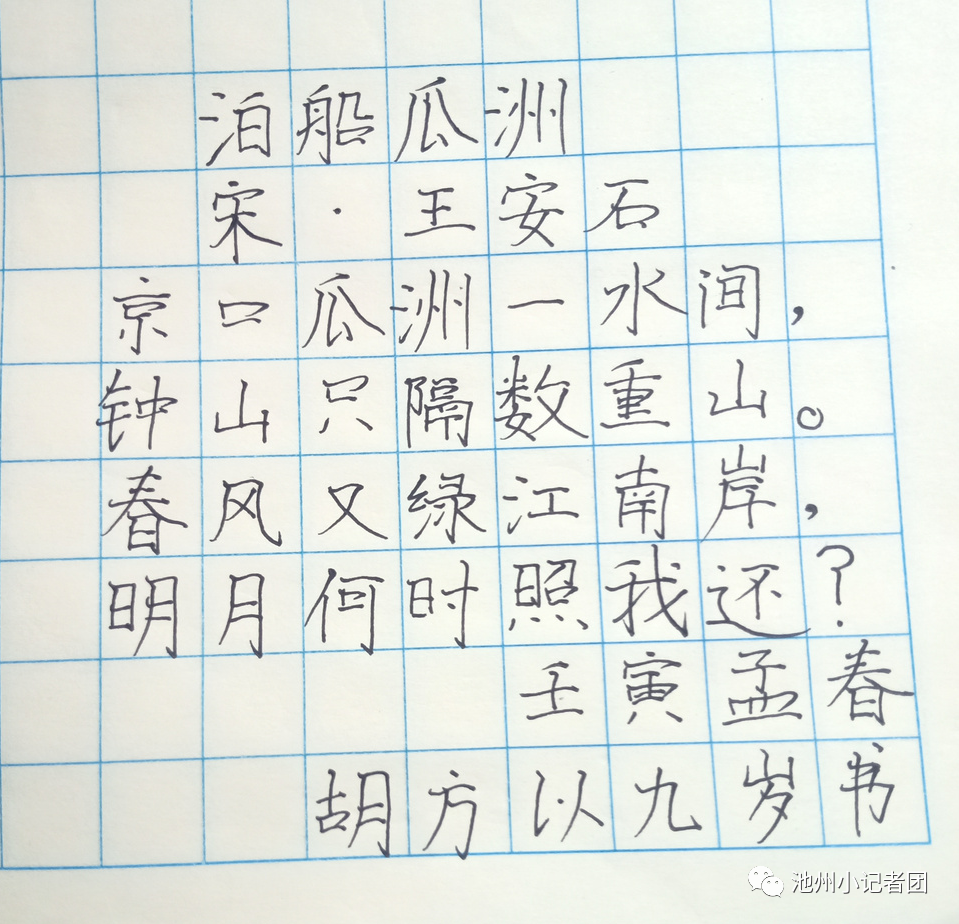 泊船瓜洲
宋·王安石
京口瓜洲一水间，
钟山只隔数重山。
春风又绿江南岸，
明月何时照我还？
壬寅孟春
胡方以九岁书
池州小记者团